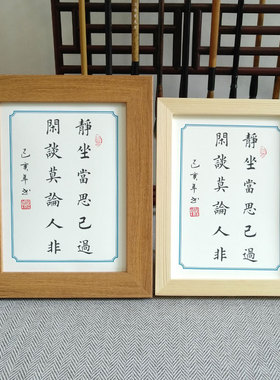 靜坐當思己過
閑談莫論人非
己亥年
靜坐當思己過
閑談莫論人非
己亥年